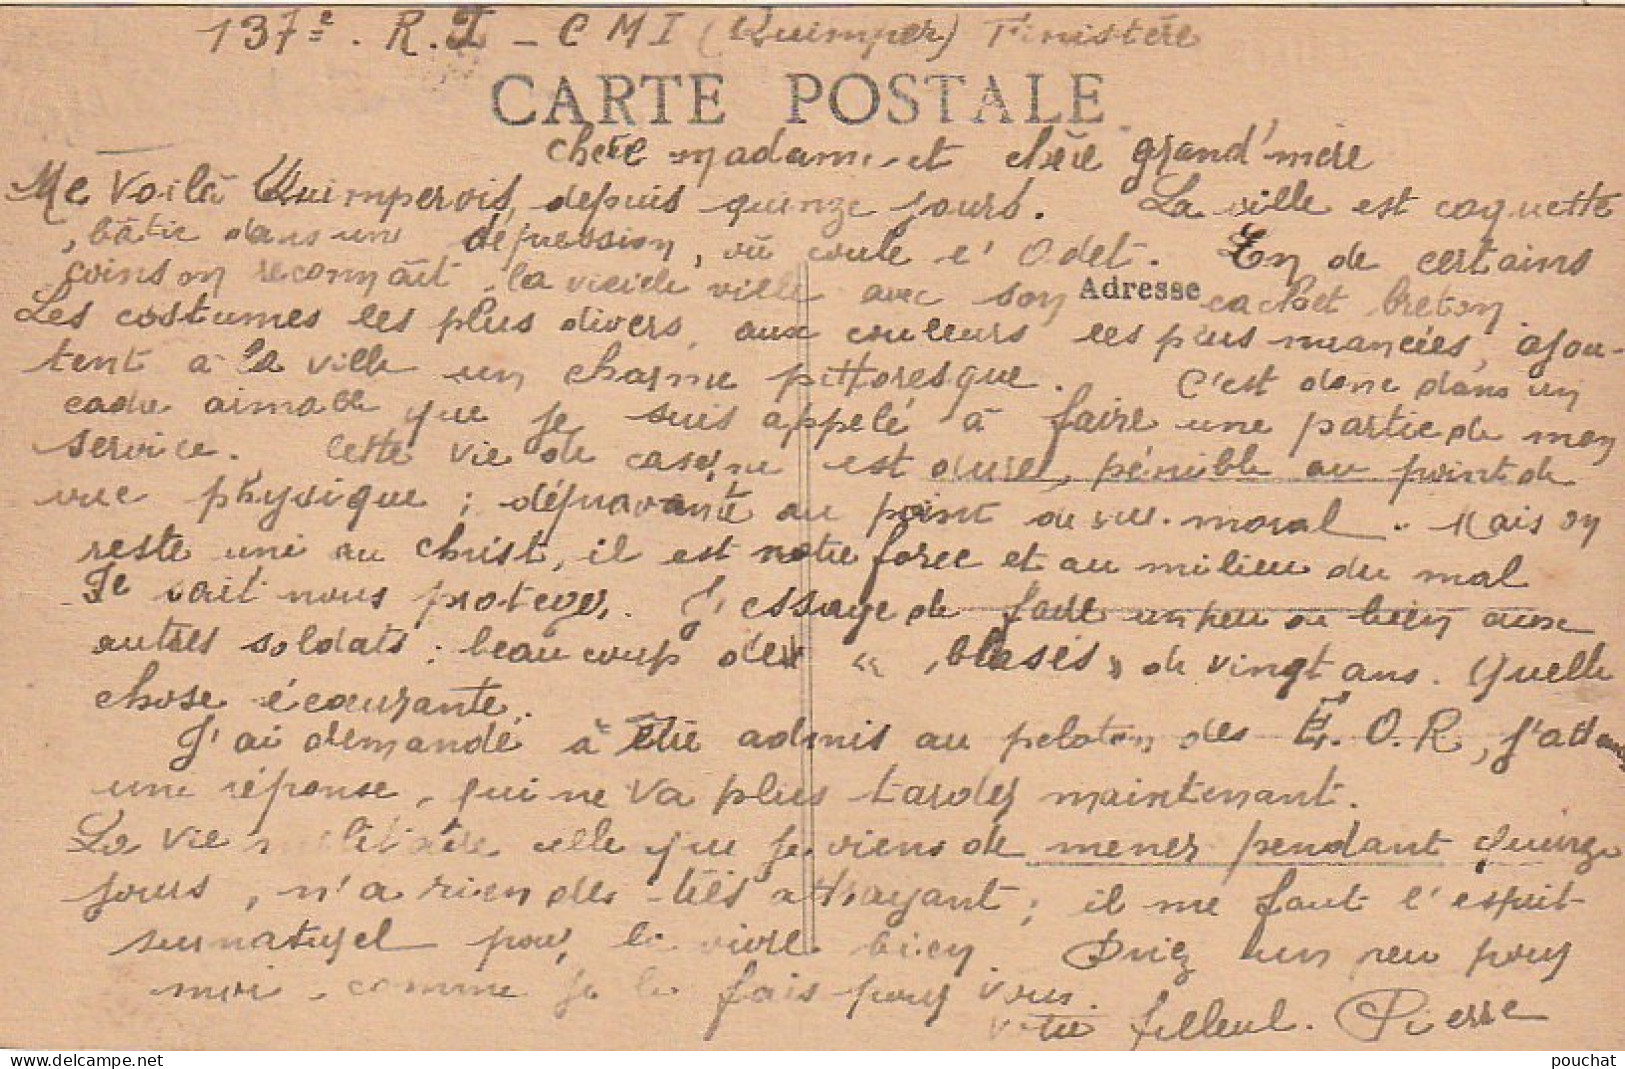 137e. R.I - C M I (Quimper) Finistère
CARTE POSTALE
chère madame et chère grand'mère
Me voilà Quimpervois, depuis quinze jours. La ville est coquette
, bâtie dans une dépression, où coule l'Odet. En de certains
coins on reconnaît la vieille ville avec son cachet breton.
Adresse
Les costumes les plus divers, aux couleurs les plus nuancées, ajou-
tent à la ville un charme pittoresque. C'est donc dans un
cadre aimable que je suis appelé à faire une partie de mon
service. Cette vie de caserne est dure, pénible au point de
vue physique ; dépravante au point de vue moral. Mais on
reste uni au Christ, il est notre force et au milieu du mal
Je sait nous protéger. J'essaye de faire un peu de bien aux
autres soldats : beaucoup de « blasés » de vingt ans. Quelle
chose écœurante.
J'ai demandé à être admis au peloton des E.O.R, j'attends
une réponse, qui ne va plus tarder maintenant.
La vie militaire, celle que je viens de mener pendant quinze
jours, n'a rien de très attrayant ; il me faut l'esprit
surnaturel pour la vivre bien. Priez un peu pour
moi, comme je le fais pour vous.
votre filleul. Pierre
pouchat